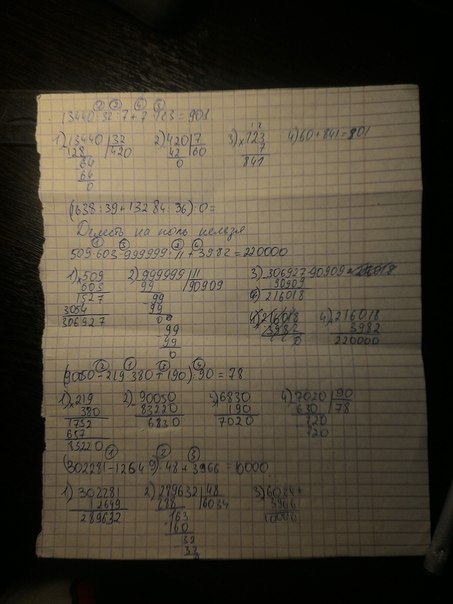 13440:32:7+7·123=901
1) 13440 | 32 2) 420 | 7 3) ×123 4) 60+841=901
128 420 42 60 7
64 0 841
64
0
(1638:39+13284:36):0=
Делить на ноль нельзя
509·603-999999:11+3982=220000
1) ×509 2) 999999 | 11 3) 306927-90909=216018
603 99 90909 90909
1527 99 216018
3054 99
306927 099 216018 4) 216018
99 3982 3982
0 0 220000
(90050-219·380+190):90=78
1) ×219 2) -90050 3) 6830 4) 7020 | 90
380 83220 190 630 78
1752 6830 7020 720
657 720
83220
(302281-12649):48+3966=10000
1) 302281 2) 289632 | 48 3) 6034+
12649 288 6034 3966
289632 163 10000
160
32
32